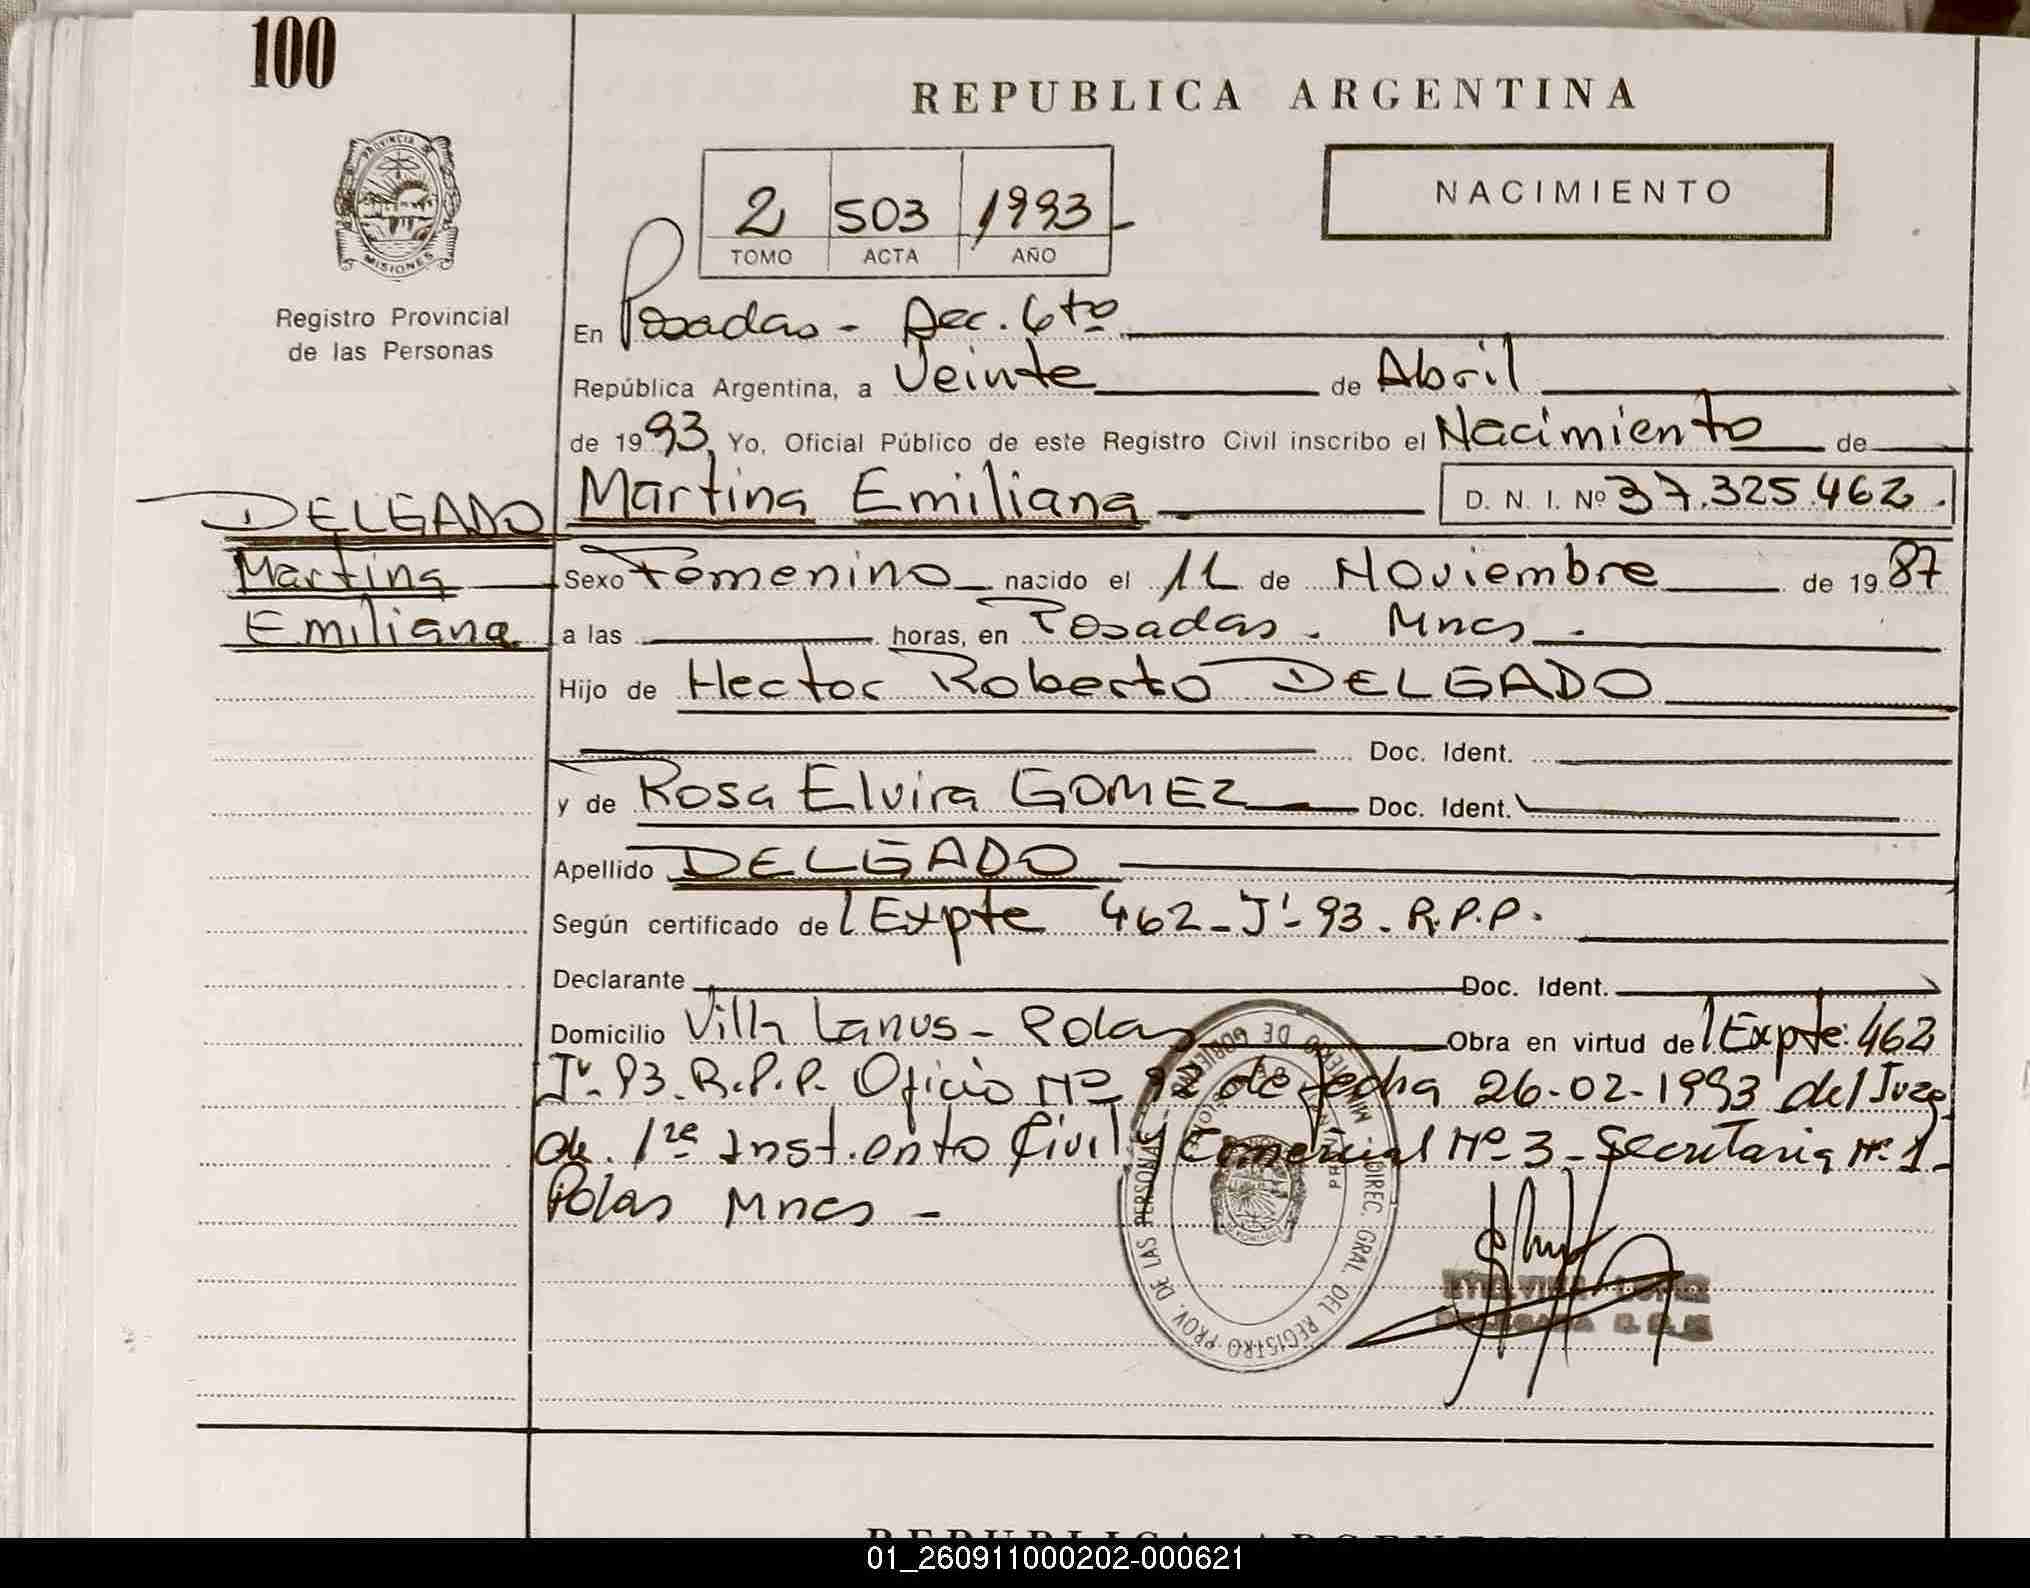 100
REPUBLICA ARGENTINA
NACIMIENTO
2 503 1993
TOMO ACTA AÑO
PROVINCIA DE
MISIONES
Registro Provincial
de las Personas
En Posadas - Sec. 6to
República Argentina, a Veinte de Abril
de 1993, Yo, Oficial Público de este Registro Civil inscribo el Nacimiento de
DELGADO Martina Emiliana D. N. I. Nº 37.325.462.
Martina Sexo Femenino nacido el 11 de Noviembre de 1987
Emiliana a las horas, en Posadas. Mnes -
Hijo de Hector Roberto DELGADO
Doc. Ident.
y de Rosa Elvira GOMEZ Doc. Ident.
Apellido DELGADO
Según certificado de l Expte 462-J'-93. R.P.P.
Declarante Doc. Ident.
Domicilio Villa Lanus - Pdas Obra en virtud de l Expte: 462
J'-93. R.P.P. Oficio Nº 92 de fecha 26-02-1993 del Juzg.
de 1ra Inst. en lo Civil y Comercial Nº 3 - Secretaria Nº 1-
Pdas Mnes -
DIREC. GRAL. DEL REGISTRO PROV. DE LAS PERSONAS
MINISTERIO DE GOBIERNO
01_260911000202-000621